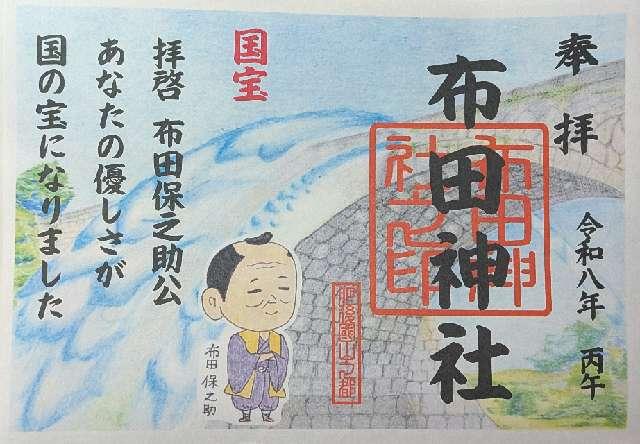 奉拝
布田神社
布田神社之印
令和八年 丙午
国宝
拝啓 布田保之助公
あなたの優しさが
国の宝になりました
布田保之助